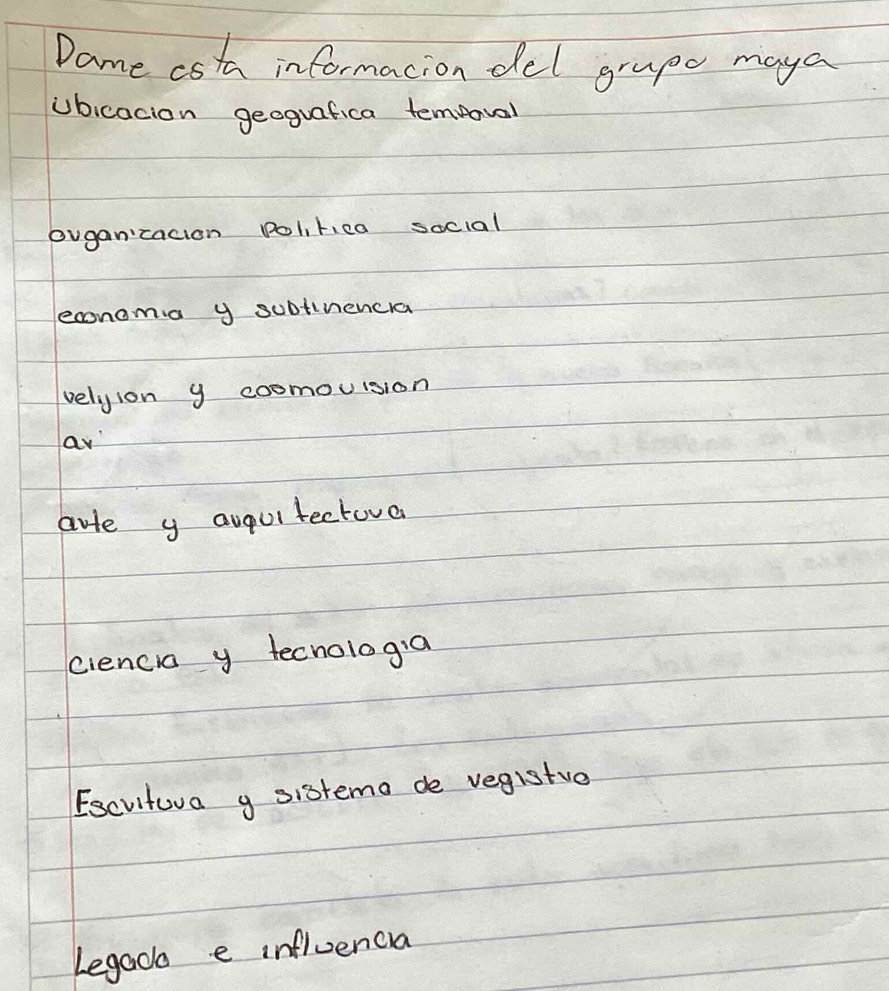 Dame esta informacion del grupo maya
Ubicacion geografica temporal
organizacion Politica social
economia y subtinencia
relijion y cosmovision
ar
arte y arquitectura
ciencia y tecnologia
Escritura y sistema de registro
Legado e influencia